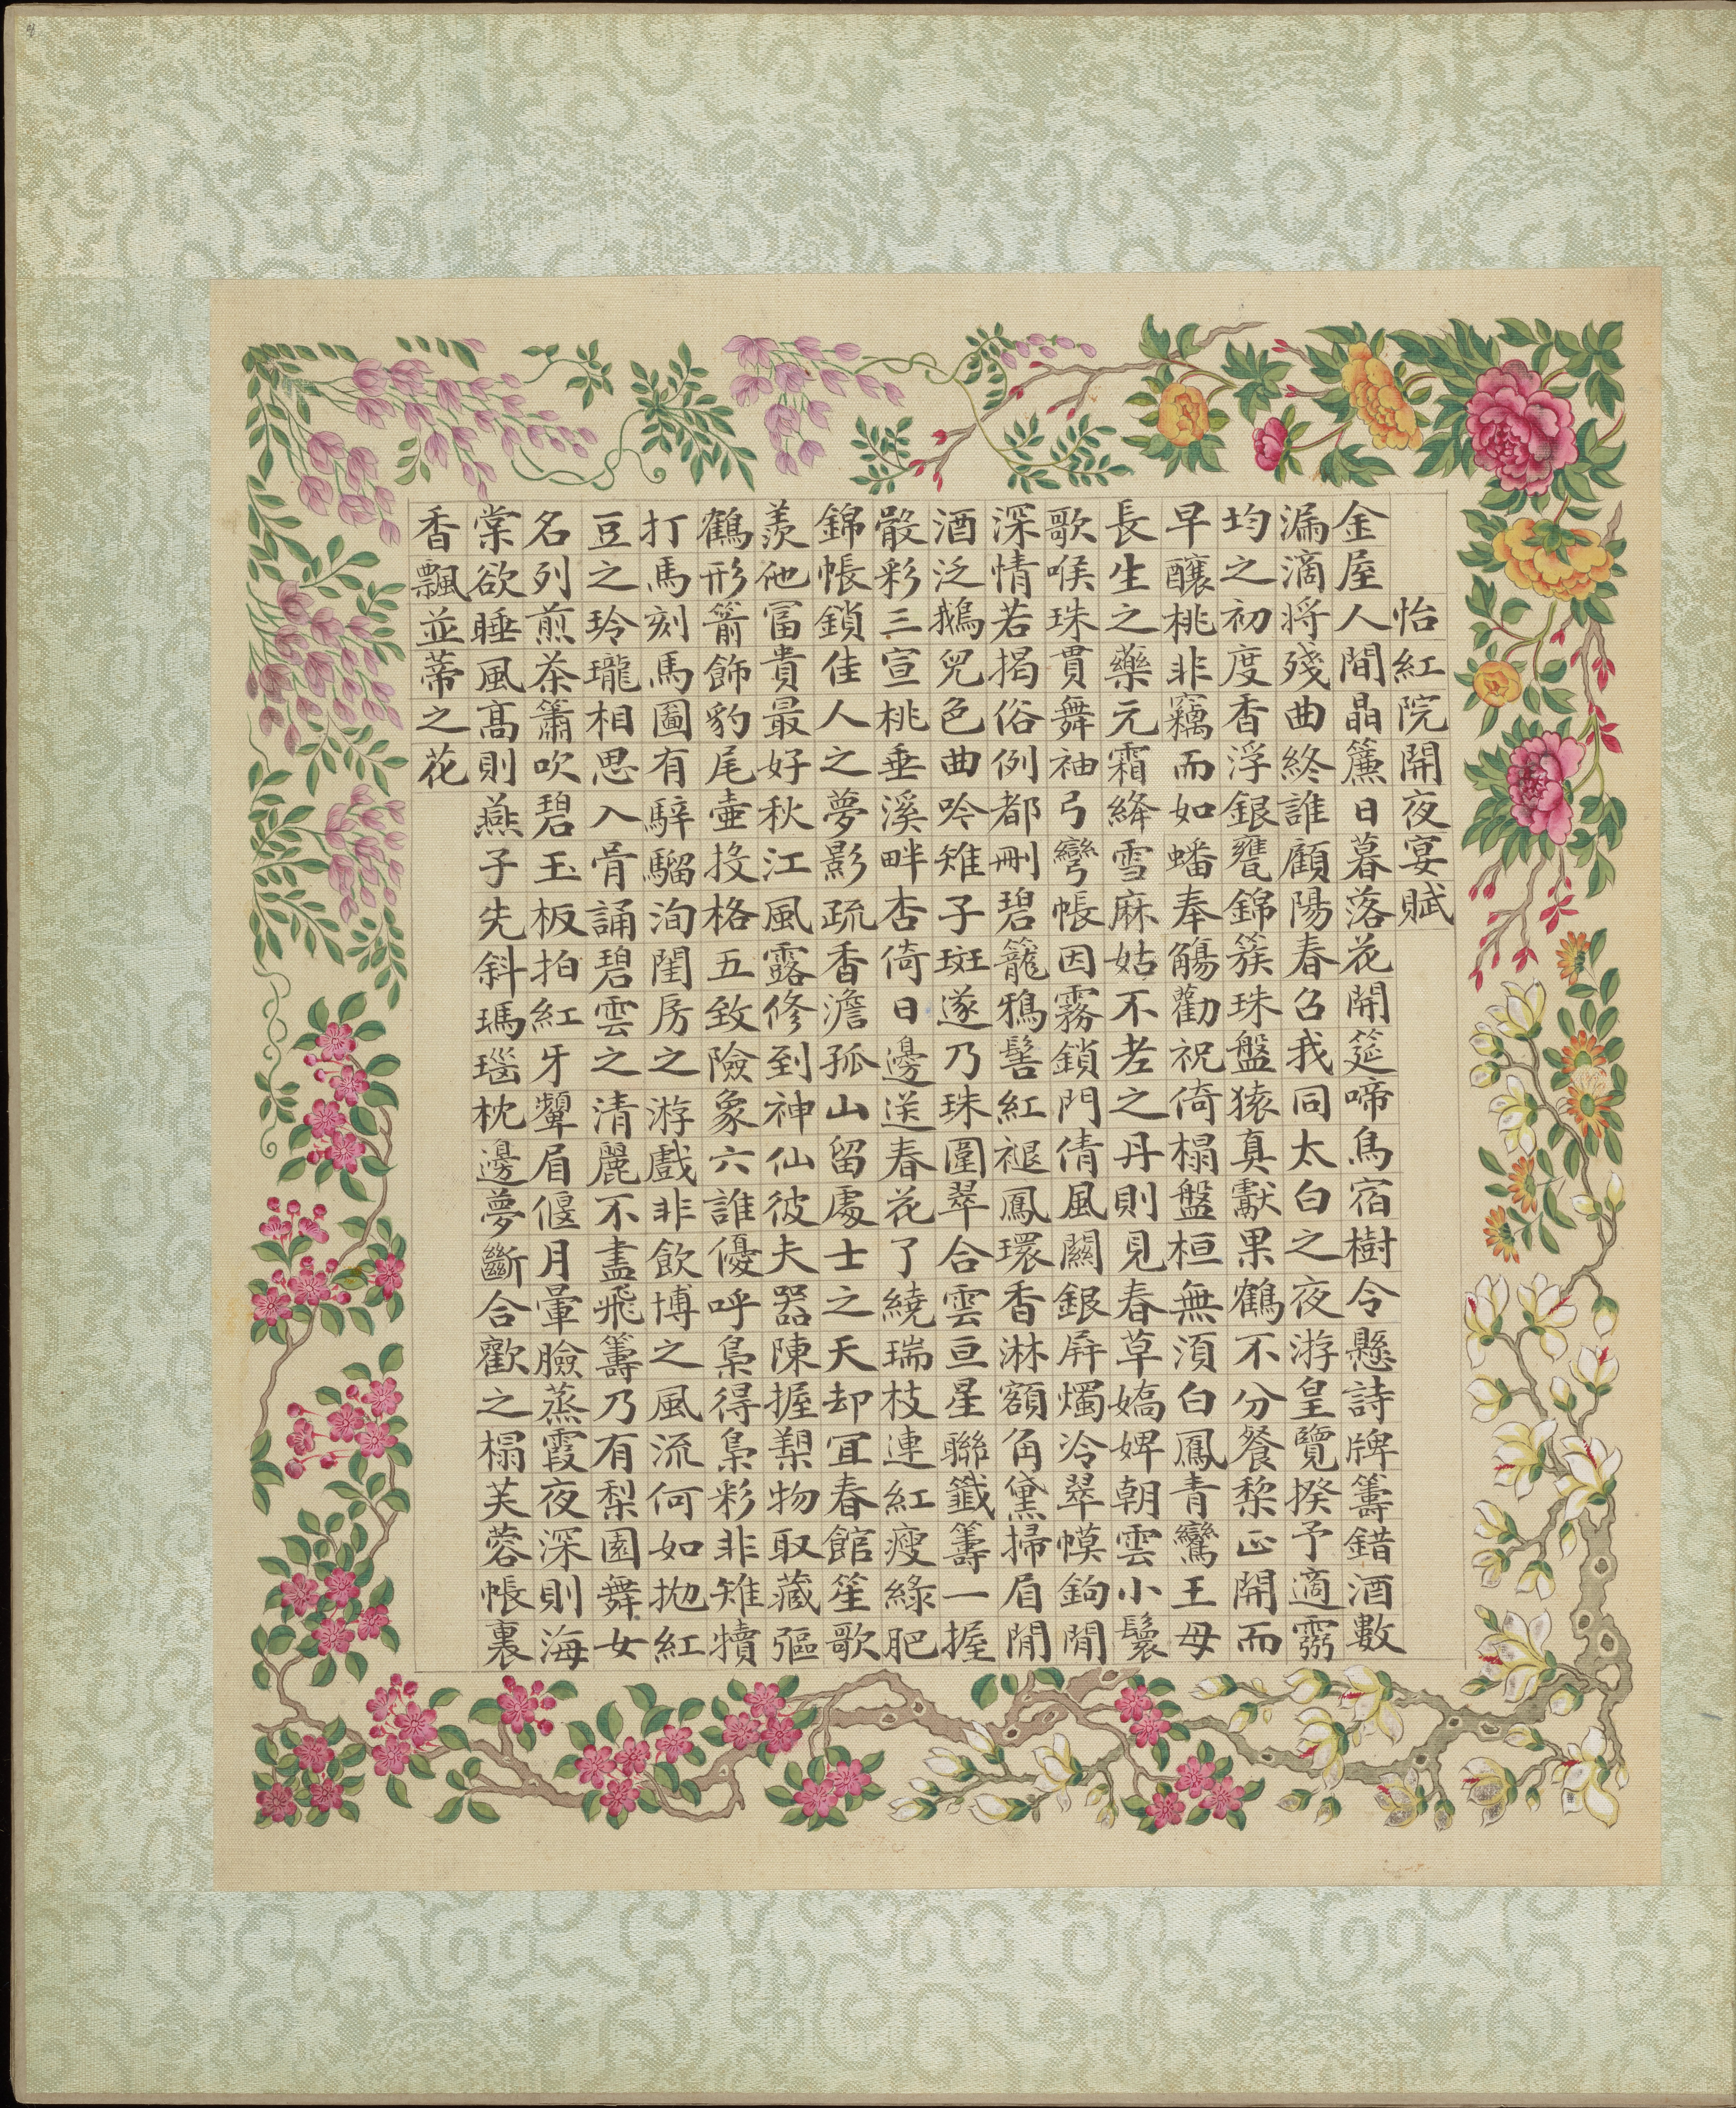 怡紅院開夜宴賦
金屋人間晶簾日暮落花開筵啼鳥宿樹令懸詩牌籌錯酒數
漏滴將殘曲終誰顧陽春召我同太白之夜游皇覽揆予適霛
均之初度香浮銀甕錦簇珠盤猿真獻果鶴不分餐棃正開而
早釀桃非竊而如蟠奉觴勸祝倚榻盤桓無須白鳳青鸞王母
長生之藥元霜絳雪麻姑不老之丹則見春草嬌婢朝雲小鬟
歌喉珠貫舞袖弓彎帳因霧鎖門倩風關銀屏燭冷翠幙鉤閒
深情若揭俗例都刪碧籠鴉髻紅褪鳳環香淋額角黛掃眉閒
酒泛鵝兒色曲吟雉子斑遂乃珠圍翠合雲亘星聯籤籌一握
骰彩三宣桃垂溪畔杏倚日邊送春花了繞瑞枝連紅瘦綠肥
錦帳鎖佳人之夢影疏香澹孤山留處士之天却宜春館笙歌
羨他富貴最好秋江風露修到神仙彼夫器陳握槊物取藏彄
鶴形箭飾豹尾壷投格五致險象六誰優呼梟得梟彩非雉犢
打馬刻馬圖有騂騮洵閨房之游戲非飲博之風流何如拋紅
豆之玲瓏相思入骨誦碧雲之清麗不盡飛籌乃有梨園舞女
名列煎茶簫吹碧玉板拍紅牙顰眉偃月暈臉蒸霞夜深則海
棠欲睡風高則燕子先斜瑪瑙枕邊夢斷合歡之榻芙蓉帳裏
香飄並蒂之花